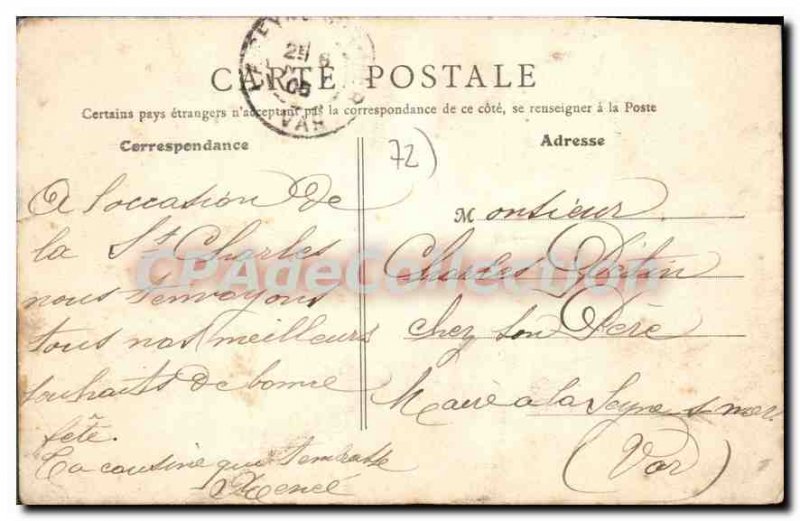 CARTE POSTALE
Certains pays étrangers n'acceptant pas la correspondance de ce côté, se renseigner à la Poste
Correspondance
Adresse
72)
25
05
VAR
CPAdeCollection
A l'occasion de
la St Charles
nous t'envoyons
tous nos meilleurs
souhaits de bonne
fête.
Ta cousine qui t'embrasse
Monsieur
Charles
chez son Père
Maire a la Seyne s mer
(Var)